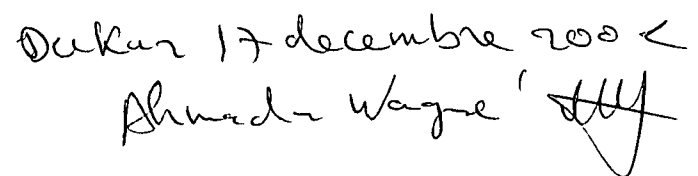 Dakar 17 decembre 200
Ahmadu Wagué